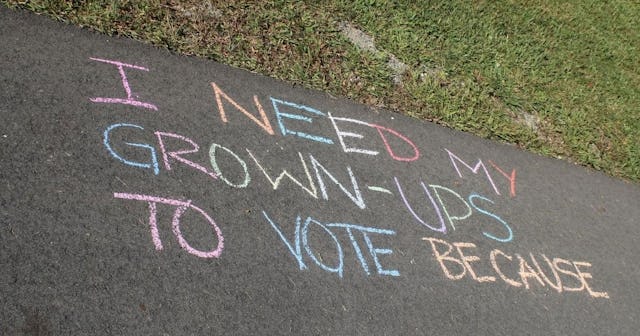 I NEED MY
GROWN-UPS
TO VOTE BECAUSE